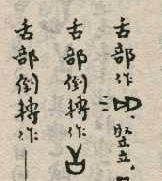 舌部作 堅立
舌部倒轉作
舌部倒轉作